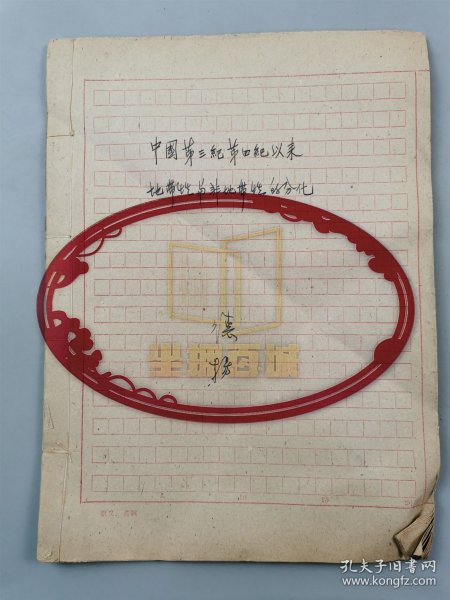 中国第三纪第四纪以来
地带性与非地带性的分化
坐拥百城
孔夫子旧书网
www.kongfz.com